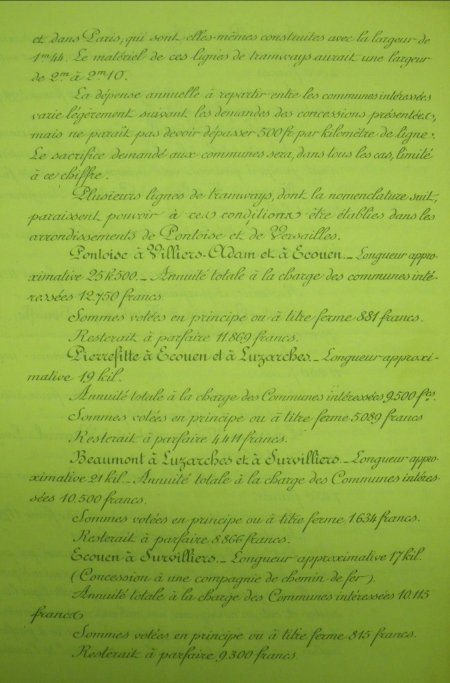 et dans Paris, qui sont elles-mêmes construites avec la largeur de
1m44. Le matériel de ces lignes de tramways aurait une largeur
de 2m à 2m10.
La dépense annuelle à répartir entre les communes intéressées
varie légèrement suivant les demandes des concessions présentées,
mais ne paraît pas devoir dépasser 500fr par kilomètre de ligne.
Le sacrifice demandé aux communes sera, dans tous les cas, limité
à ce chiffre.
Plusieurs lignes de tramways, dont la nomenclature suit,
paraissent pouvoir à ces conditions être établies dans les
arrondissements de Pontoise et de Versailles.
Pontoise à Villiers-Adam et à Ecouen._ Longueur appro-
ximative 25k500._ Annuité totale à la charge des communes inté-
ressées 12.750 francs.
Sommes votées en principe ou à titre ferme 881 francs.
Resterait à parfaire 11.869 francs.
Pierrefitte à Ecouen et à Luzarches._ Longueur approxi-
mative 19 kil.
Annuité totale à la charge des Communes intéressées, 9.500 frs.
Sommes votées en principe ou à titre ferme 5089 francs
Resterait à parfaire 4411 francs.
Beaumont à Luzarches et à Survilliers._ Longueur appro-
ximative 21 kil._ Annuité totale à la charge des Communes intéres-
sées 10.500 francs.
Sommes votées en principe ou à titre ferme, 1634 francs.
Resterait à parfaire 8.866 francs.
Ecouen à Survilliers._ Longueur approximative 17 kil
(Concession à une compagnie de chemin de fer).
Annuité totale à la charge des Communes intéressées 10.115
francs
Sommes votées en principe ou à titre ferme 815 francs.
Resterait à parfaire, 9.300 francs.